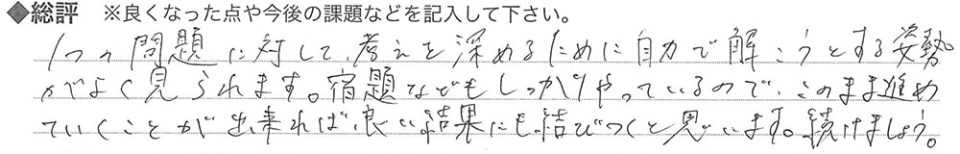 ◆総評 ※良くなった点や今後の課題などを記入して下さい。
1つの問題に対して、考えを深めるために自力で解こうとする姿勢
がよく見られます。宿題などもしっかりやっているので、このまま進め
ていくことが出来れば、良い結果にも結びつくと思います。続けましょう。